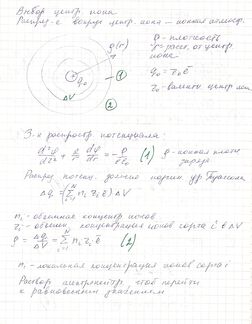 Выбор центр. иона
Распред-е вокруг центр. иона — ионная атмосф.
ρ(r)
ρ - плотность
r - расст. от центр.
иона
q₀ = z₀ē
z₀ - валентн. центр.
r
q₀
ΔV
(1)
(2)
З-н распростр. потенциала:
d²φ/dr² + 2/r dφ/dr = -ρ/εε₀ (1) ρ - ионная плотн.
заряда
Распред. потенц. должно
Δq = (Σ nᵢ zᵢ ē) ΔV
nᵢ - объемная концентр. ионов
концентрация ионов сорта i в ΔV
ρ = Δq/ΔV = Σ nᵢ zᵢ ē (2)
nᵢ - локальная концентрация ионов сорта i
Раствор электронейтр., чтоб перейти
к равновесным